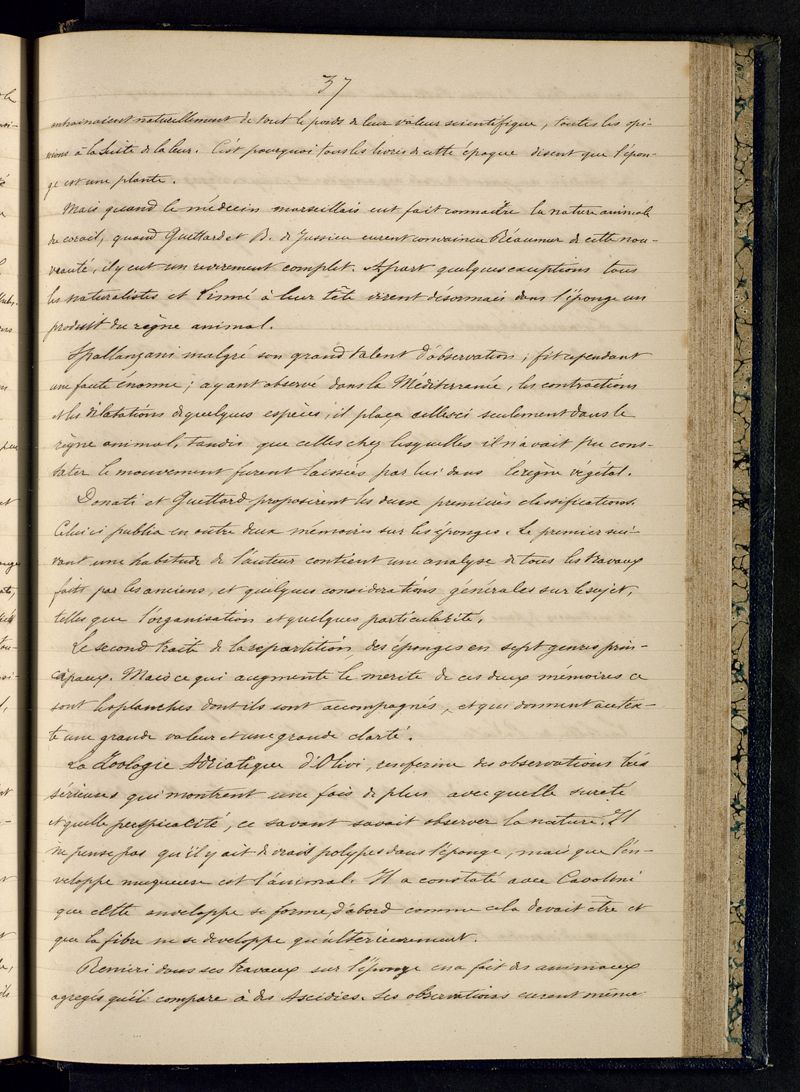 37
entrainaient naturellement de tout le poids de leur valeur scientifique, toutes les opi-
nions à la suite de la leur. C'est pourquoi tous les livres de cette époque disent que l'épon-
ge est une plante.
Mais quand le médecin marseillais eut fait connaître la nature animale
du corail, quand Guettard et B. de Jussieu eurent convaincu Réaumur de cette nou-
veauté, il y eut un revirement complet. Apart quelques exceptions tous
les naturalistes et Linné à leur tête virent désormais dans l'éponge un
produit du règne animal.
Spallanzani malgré son grand talent d'observation, fit cependant
une faute énorme; ayant observé dans la Méditerranée, les contractions
et les dilatations de quelques espèces, il plaça celles ci seulement dans le
règne animal, tandis que celles chez lesquelles il n'avait pu cons-
tater le mouvement furent laissées par lui dans le règne végétal.
Donati et Guettard proposèrent les deux premières classifications.
Celui ci publia en outre deux mémoires sur les éponges. Le premier sui-
vant une habitude de l'auteur contient une analyse de tous les travaux
faits par les anciens, et quelques considérations générales sur le sujet,
telles que l'organisation et quelques particularité.
Le second traite de la repartition des éponges en sept genres prin-
cipaux. Mais ce qui augmente le merite de ces deux mémoires ce
sont les planches dont ils sont accompagnés, et qui donnent au tex-
te une grande valeur et une grande clarté.
La Zoologie Adriatique d'Olivi, renferme des observations très
sérieuses qui montrent une fois de plus avec quelle sureté
et quelle perspicacité, ce savant savait observer la nature. Il
ne pense pas qu'il y ait de vrais polypes dans l'éponge, mais que l'én-
veloppe muqueuse est l'animal. Il a constaté avec Cavolini
que cette enveloppe se forme d'abord comme cela devait être et
que la fibre ne se developpe qu'ultérieurement.
Renieri dans ses travaux sur l'éponge en a fait des animaux
agregés qu'il compare à des Ascidies. Ses observations eurent même